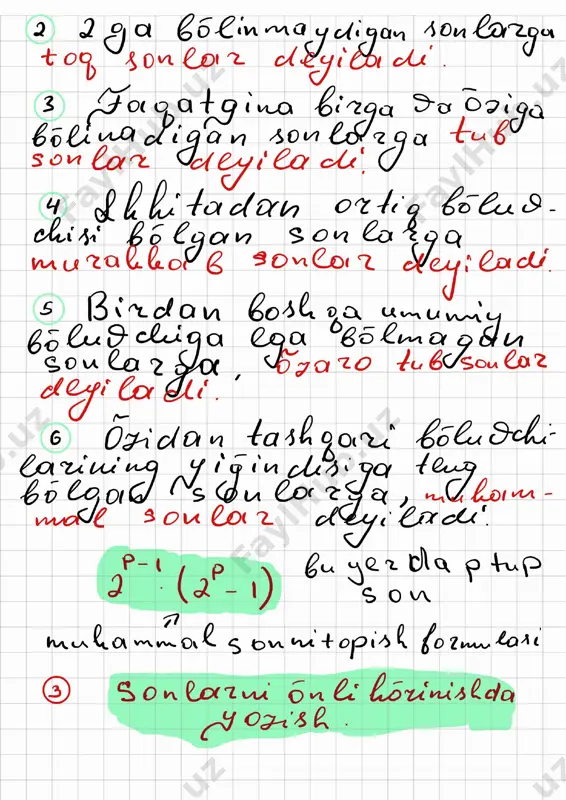 2 2 ga bōlinmaydigan sonlarga
toq sonlar deyiladi.
3 Faqatgina birga va ōziga
bōlinadigan sonlarga tub
sonlar deyiladi.
4 Ikkitadan ortiq bōluv-
chisi bōlgan sonlarga
murakkab sonlar deyiladi.
5 Birdan boshqa umumiy
bōluvchiga ega bōlmagan
sonlarga, ōzaro tub sonlar
deyiladi.
6 Ōzidan tashqari bōluvchi-
larining yiğindisiga teng
bōlgan sonlarga, mukam-
mal sonlar deyiladi.
2^(p-1) · (2^p - 1) bu yerda p tup
son
mukammal sonni topish formulasi
3 Sonlarni ōnli kōrinishda
yozish.
FaylHub.uz